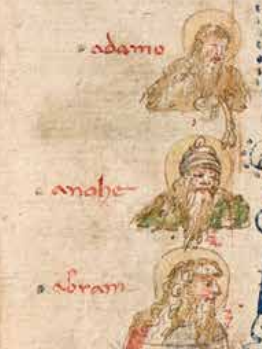 adamo
anohe
abram